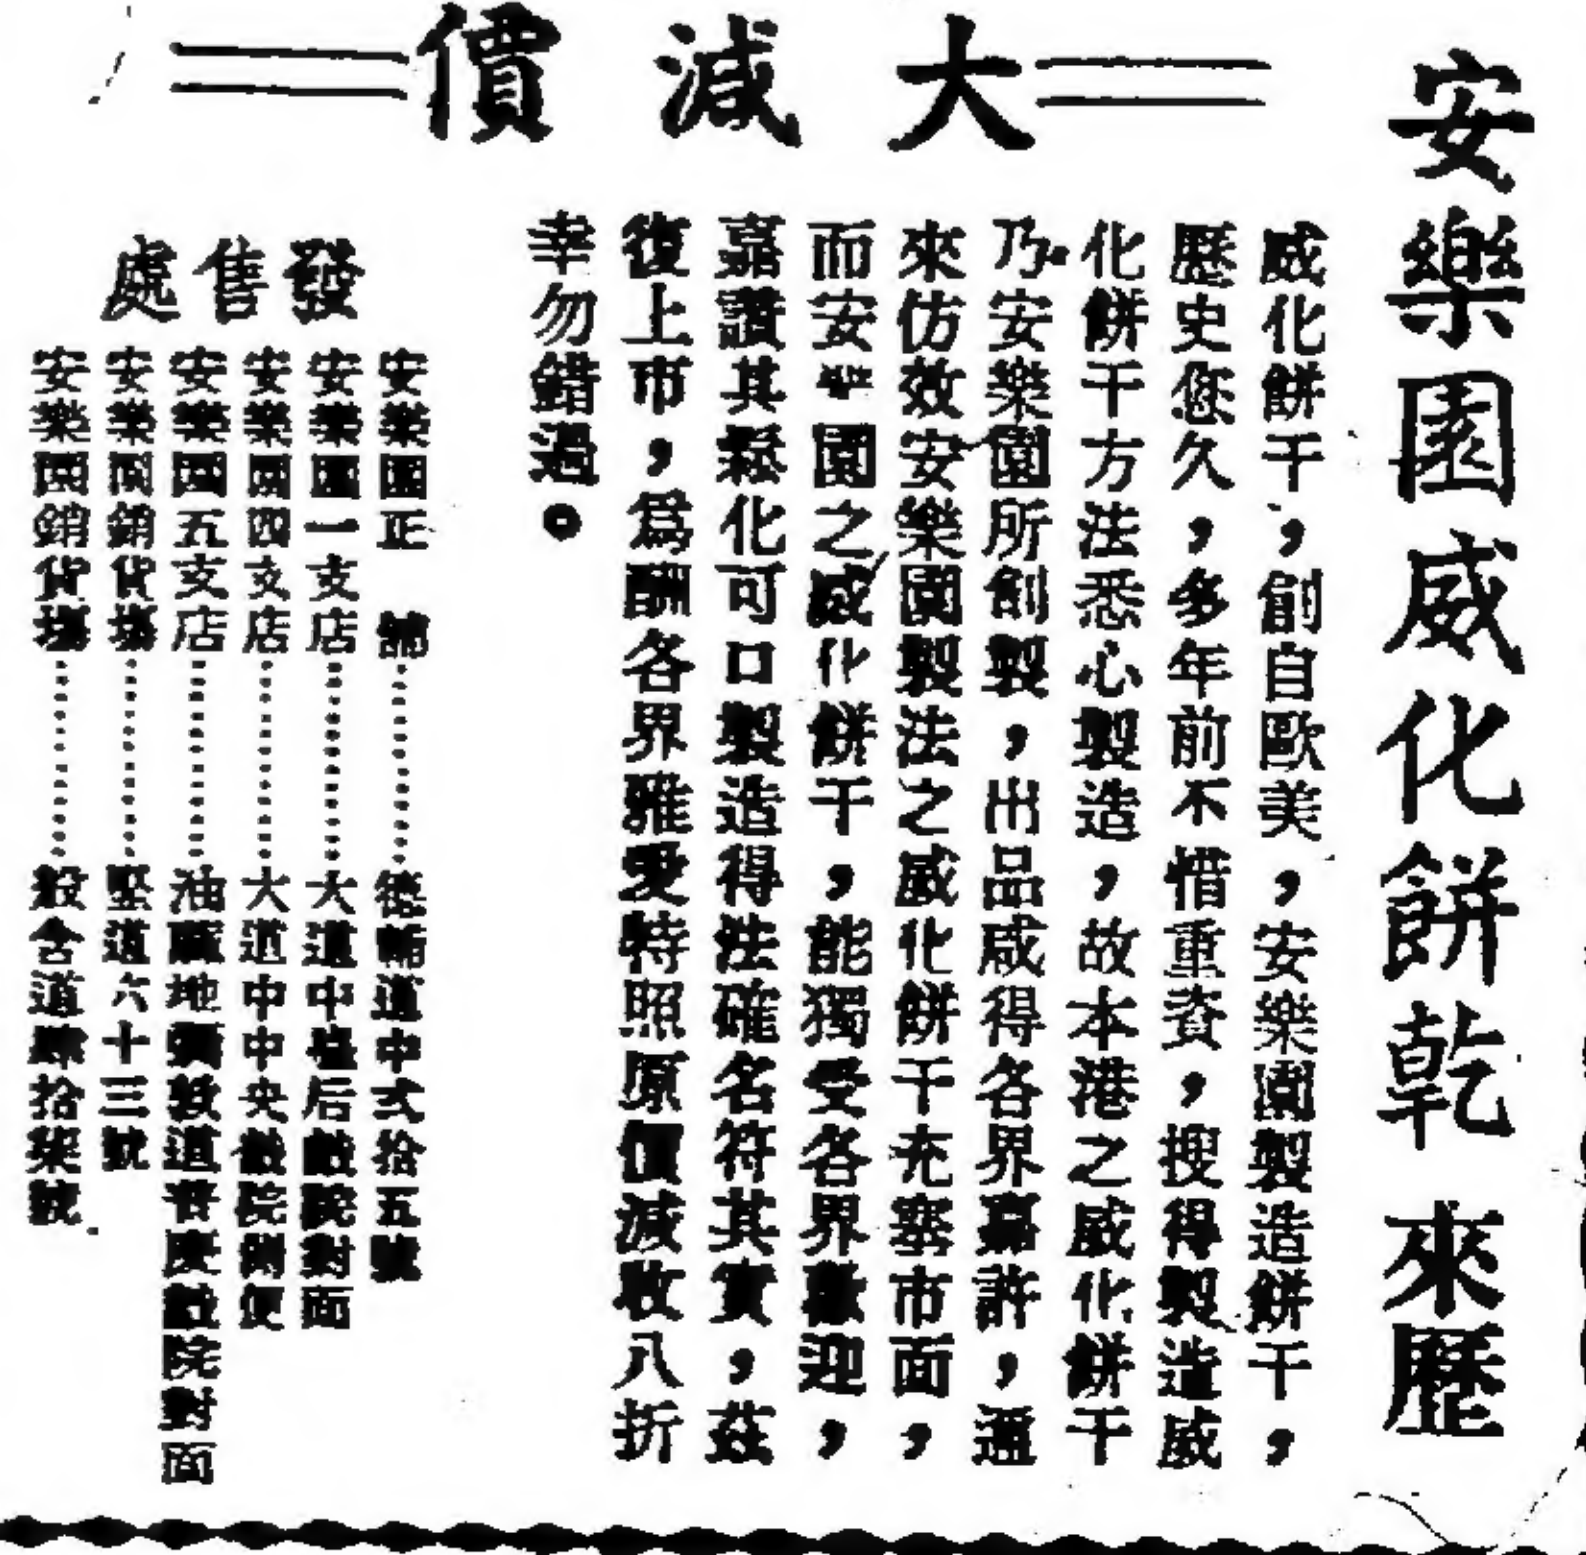 安樂園威化餅乾來歷
大減價
威化餅干，創自歐美，安樂園製造餅干，
歷史悠久，多年前不惜重資，搜得製造威
化餅干方法悉心製造，故本港之威化餅干
乃安樂園所創製，出品咸得各界嘉許，邇
來仿效安樂園製法之威化餅干充塞市面，
而安樂園之威化餅干，能獨受各界歡迎，
嘉讚其鬆化可口製造得法確名符其實，茲
復上市，爲酬各界雅愛特照原價減收八折
幸勿錯過。
發售處
安樂園正 舖…………德輔道中弍拾五號
安樂園一支店…………大道中皇后戲院對面
安樂園四支店…………大道中中央戲院側便
安樂園五支店…………油蔴地彌敦道普慶戲院對面
安樂園銷貨塲…………堅道六十三號
安樂園銷貨塲…………般含道肆拾柒號